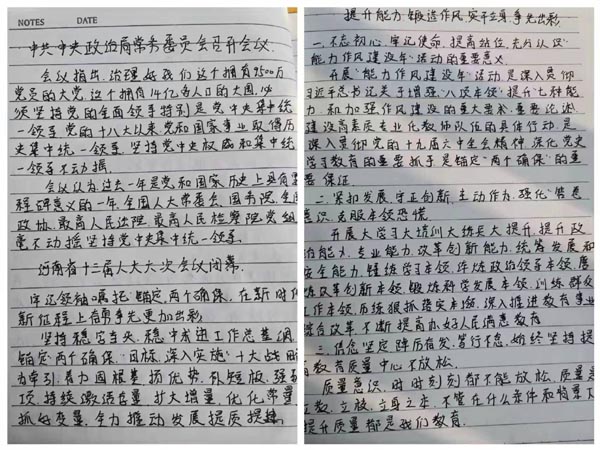 NOTES DATE
中共中央政治局常务委员会召开会议
会议指出,治理好我们这个拥有9500万
党员的大党,这个拥有14亿多人口的大国,必
须坚持党的全面领导特别是党中央集中统
一领导,党的十八大以来党和国家事业取得历
史集中统一领导,坚持党中央权威和集中统
一领导不动摇
会议认为过去一年是党和国家历史上具有里
程碑意义的一年,全国人大常委会、国务院、全国
政协、最高人民法院、最高人民检察院党组
毫不动摇坚持党中央集中统一领导
河南省十三届人大六次会议闭幕
牢记领袖嘱托,锚定两个确保,在新时代
新征程上奋勇争先更加出彩
坚持稳字当头,稳中求进工作总基调
锚定"两个确保"目标,深入实施"十大战略"
为牵引,着力固根基、扬优势、补短板、强弱
项,持续激活存量、扩大增量、优化常量
抓好变量,全力推动发展提质提速
提升能力 锻造作风 实干立身 争先出彩
一、不忘初心,牢记使命,提高站位,充分认识
能力作风建设年"活动的重要意义
开展"能力作风建设年"活动是深入贯彻
习近平总书记关于增强"八项本领"提升"七种能
力"和加强作风建设的重大要求、重要论述
建设高素质专业化教师队伍的具体行动,是
深入贯彻党的十九届六中全会精神,深化党史
学习教育的重要抓手,是锚定"两个确保"的重
要保证
二、紧扣发展,守正创新,主动作为,强化"答卷"
意识,克服本领恐慌
开展大学习大培训大练兵大提升,提升政
治能力、专业能力、改革创新能力、统筹发展和
安全能力,锤炼学习本领,淬炼政治领导本领,磨
炼改革创新本领,锻炼科学发展本领,训练群众
工作本领,历练狠抓落实本领,深入推进教育事业
综合改革,不断提高办好人民满意教育
三、信念坚定,踔厉奋发,笃行不怠,始终坚持提
升教育质量中心不放松
质量意识,时时刻刻都不能放松,质量是
立教、立校、立身之本,不管在什么条件和情景下
提升质量都是我们教育